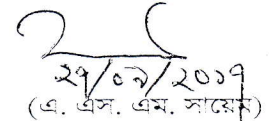 ২৭/০৯/২০১৭
(এ. এস. এম. সায়েম)